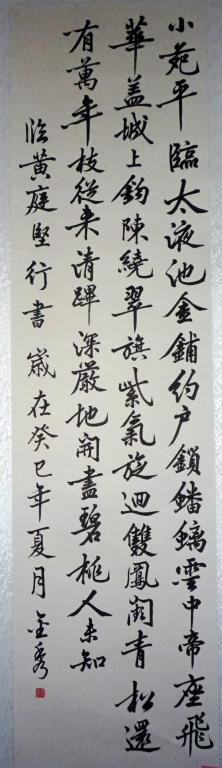 小苑平臨太液池金鋪約户鎖蟠螭雲中帝座飛
華盖城上鈎陳繞翠旗紫氣旋迴雙鳳闕青松還
有萬年枝從来清蹕深嚴地開盡碧桃人未知
临黄庭堅行書 嵗在癸巳年夏月 金秀